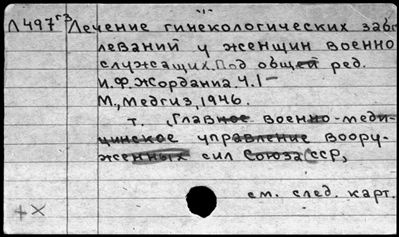 Л497гз Лечение гинекологических забо
леваний у женщин военно
служащих. Под общей ред.
И.Ф. Жордания. Ч.1-
М., Медгиз, 1946.
т. (Главное военно-меди-
цинское управление Воору-
женных сил Союза ССР,
см. след. карт.
+х